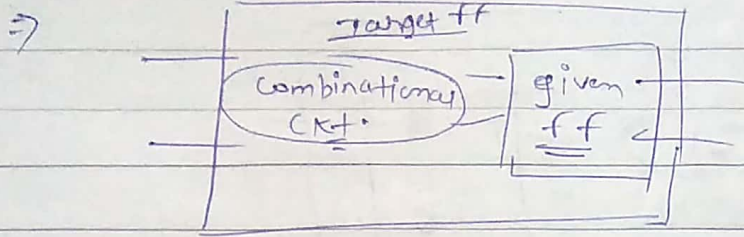 ⇒ Target ff
Combinational given
Ckt. ff